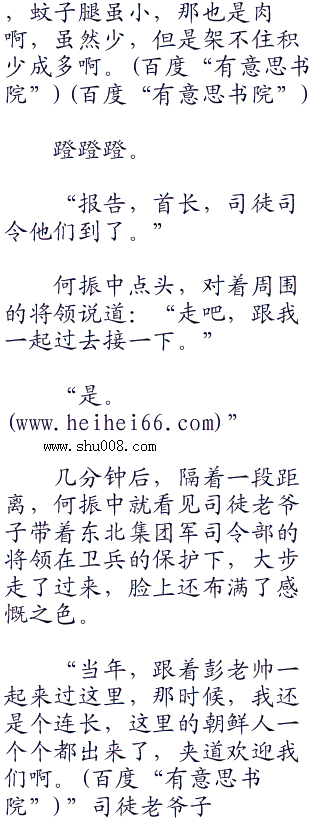 ，蚊子腿虽小，那也是肉
啊，虽然少，但是架不住积
少成多啊。(百度“有意思书
院”)(百度“有意思书院”)
蹬蹬蹬。
“报告，首长，司徒司
令他们到了。”
何振中点头，对着周围
的将领说道：“走吧，跟我
一起过去接一下。”
“是。
(www.heihei66.com)”
www.shu008.com
几分钟后，隔着一段距
离，何振中就看见司徒老爷
子带着东北集团军司令部的
将领在卫兵的保护下，大步
走了过来，脸上还布满了感
慨之色。
“当年，跟着彭老帅一
起来过这里，那时候，我还
是个连长，这里的朝鲜人一
个个都出来了，夹道欢迎我
们啊。(百度“有意思书
院”)”司徒老爷子